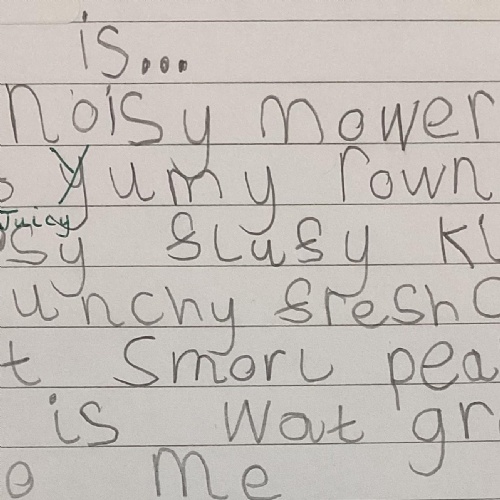 is...
Noisy mower
yumy rown
Juicy
sy flufy Kl
unchy fresh C
t Smorl pea
is Wat gr
o Me